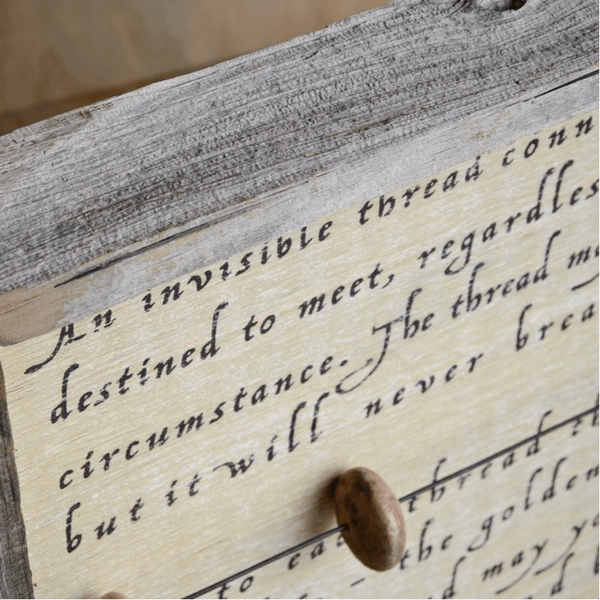 An invisible thread conn
destined to meet, regardles
circumstance. The thread m
but it will never brea
thread
to ea
- the golden
may yo